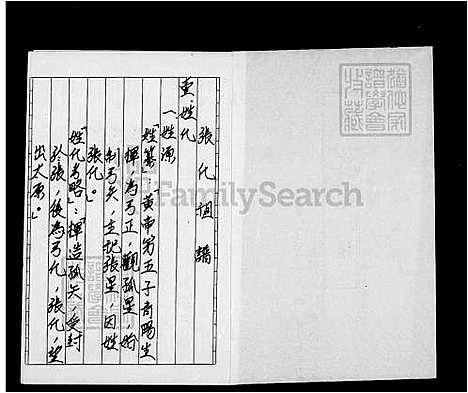 張氏祖譜
壹、姓氏
一、姓源
「姓纂」「黃帝第五子青陽生
揮,為弓正,觀弧星,始
制弓矢,主祀張星,因姓
張氏。」
「姓氏考略」:「揮造弧矢,受封
於張,後為弓氏,張氏,望
出太原。」
FamilySearch
譜學會
收藏